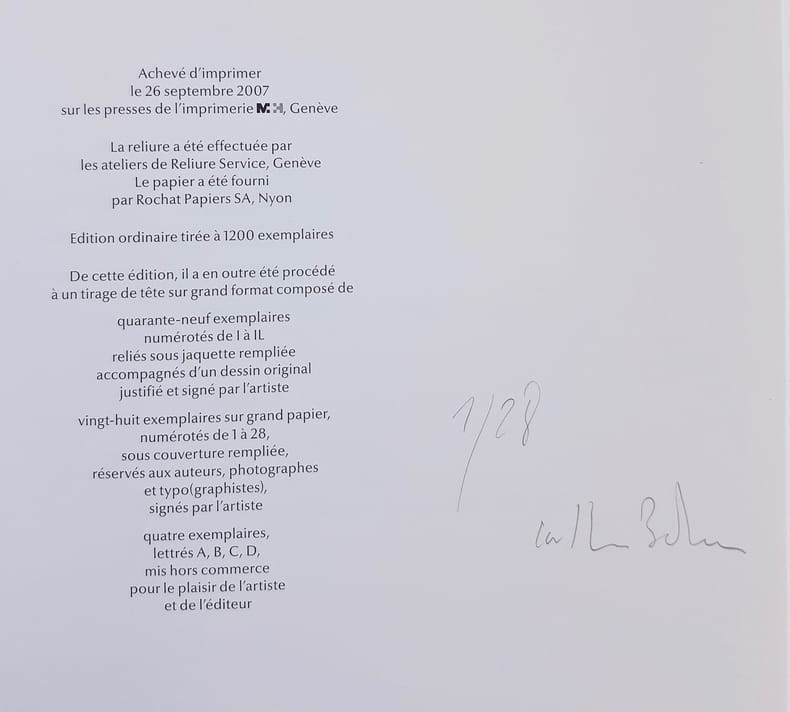 Achevé d'imprimer
le 26 septembre 2007
sur les presses de l'imprimerie M+H, Genève
La reliure a été effectuée par
les ateliers de Reliure Service, Genève
Le papier a été fourni
par Rochat Papiers SA, Nyon
Edition ordinaire tirée à 1200 exemplaires
De cette édition, il a en outre été procédé
à un tirage de tête sur grand format composé de
quarante-neuf exemplaires
numérotés de I à IL
reliés sous jaquette rempliée
accompagnés d'un dessin original
justifié et signé par l'artiste
vingt-huit exemplaires sur grand papier,
numérotés de 1 à 28,
sous couverture rempliée,
réservés aux auteurs, photographes
et typo(graphistes),
signés par l'artiste
quatre exemplaires,
lettrés A, B, C, D,
mis hors commerce
pour le plaisir de l'artiste
et de l'éditeur
1/28